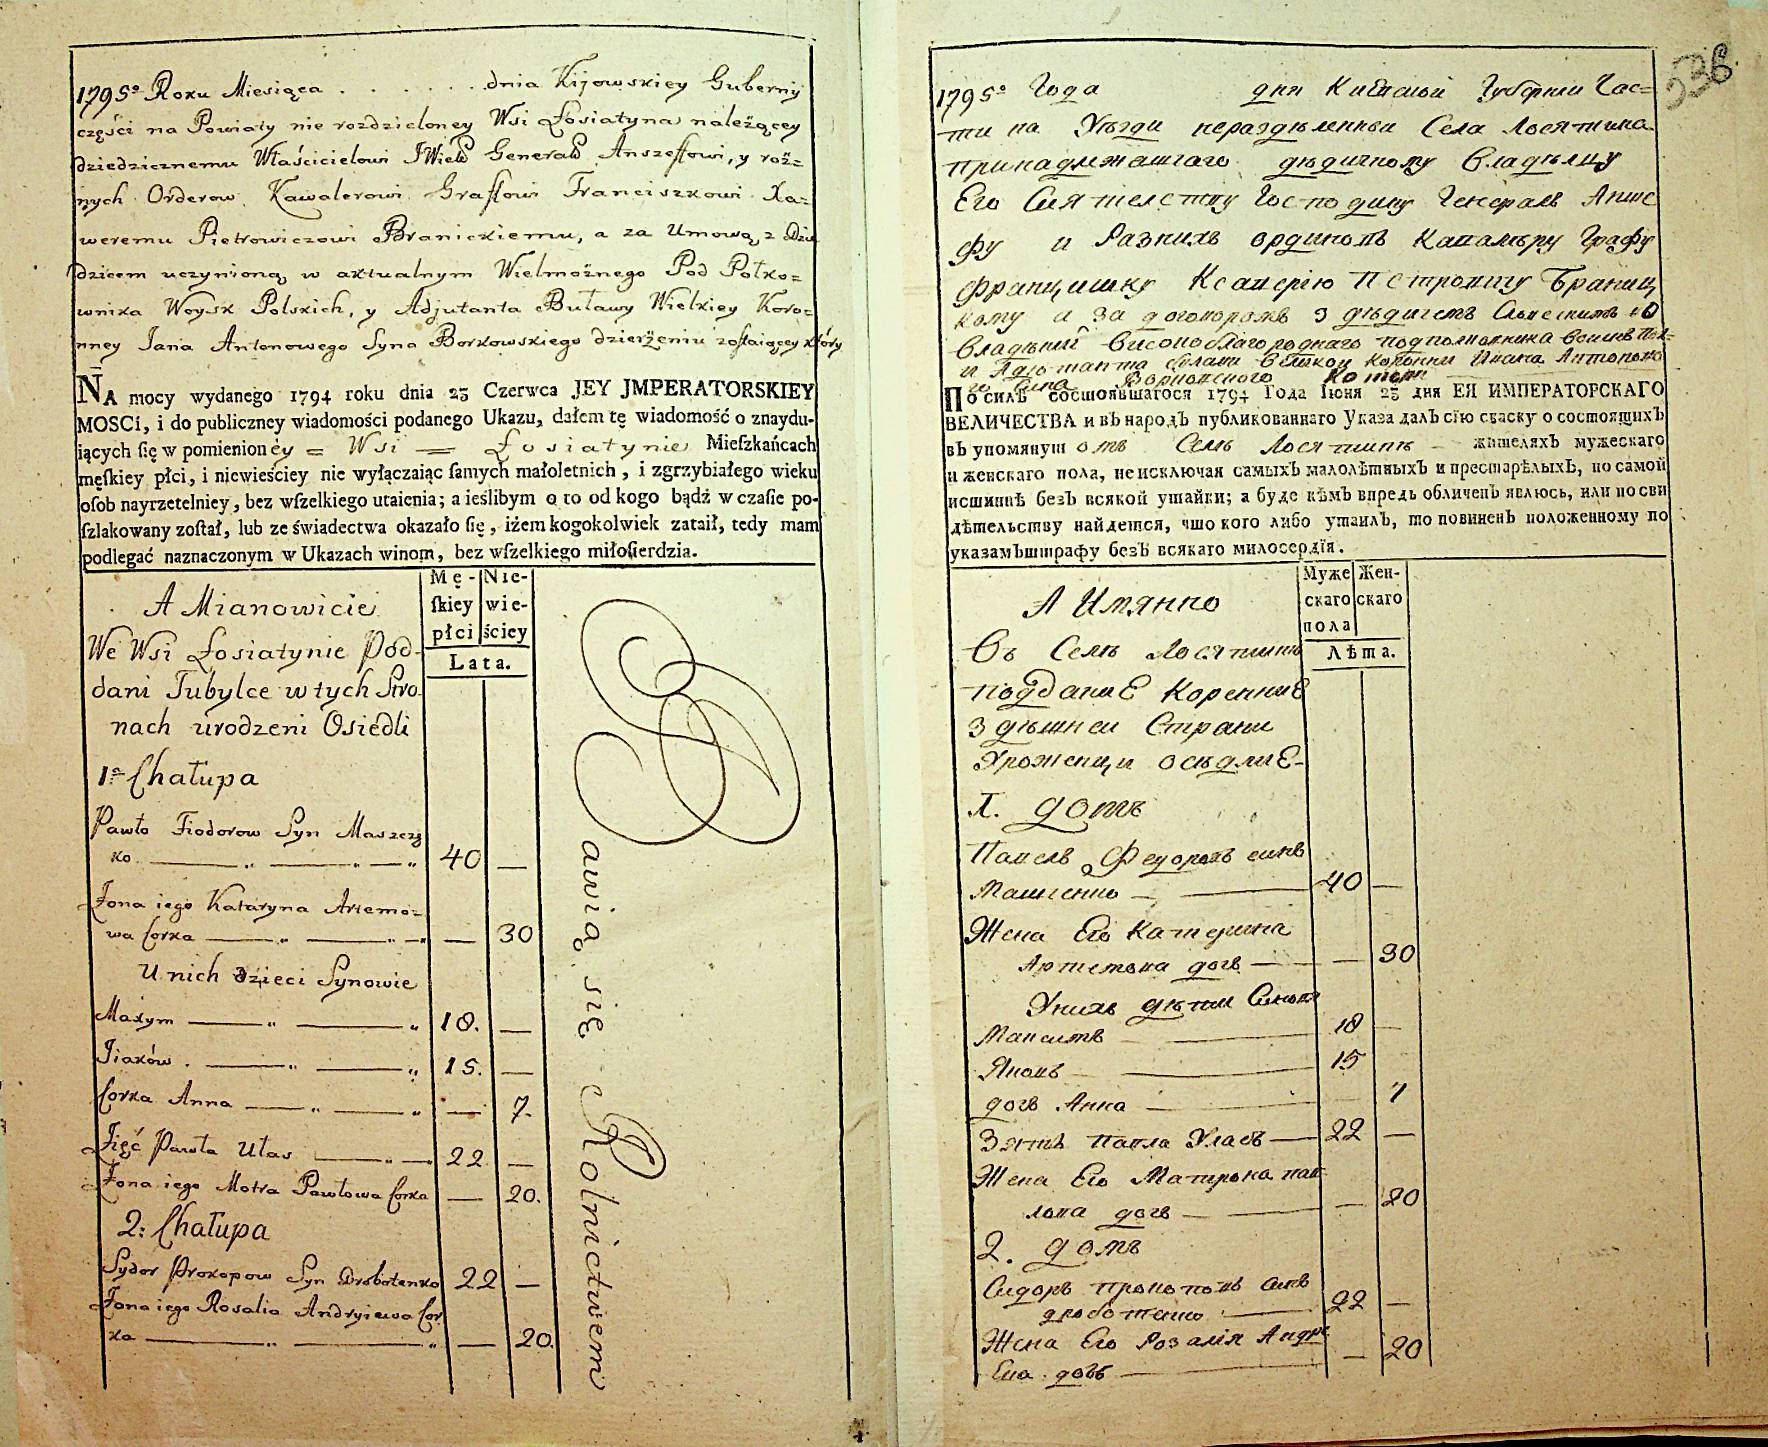 1795º Roku Miesiąca . . . . . . . dnia Kijowskiey Guberny
części na Powiaty nie rozdzieloney Wsi Łosiatyna należącey
dziedzicznemu Właścicielowi JWiel Generał Anszeffowi, y róż=
nych Orderow Kawalerowi Graffowi Franciszkowi Xa=
weremu Pietrowiczowi Branickiemu, a za Umową z Dzie
dzicem uczynioną w aktualnym Wielmożnego Pod Połko=
wnika Woysk Polskich, y Adjutanta Buławy Wielkiey Koro=
nney Jana Antonowego Syna Borkowskiego dzierżeniu zostaiącey który
NA mocy wydanego 1794 roku dnia 23 Czerwca JEY JMPERATORSKIEY
MOSCI, i do publiczney wiadomości podanego Ukazu, dałem tę wiadomość o znaydu-
iących ſię w pomienionéy = Wsi = Łosiatynie Mieſzkańcach
męſkiey płci, i niewieściey nie wyłączaiąc ſamych małoletnich, i zgrzybiałego wieku
oſob nayrzetelniey, bez wſzelkiego utaienia; a ieślibym o to od kogo bądź w czaſie po-
ſzlakowany zoſtał, lub ze świadectwa okazało ſię, iżem kogokolwiek zataił, tedy mam
podlegać naznaczonym w Ukazach winom, bez wſzelkiego miłoſierdzia.
A Mianowicie
Mę- Nie-
ſkiey wie-
płci ściey
Lata.
We Wsi Łosiatynie Pod-
dani Tubylce w tych Stro
nach urodzeni Osiedli
1ª Chałupa
Pawło Fiodorow Syn Maszcz
ko — „ — „ — „ 40 —
Żona iego Kataryna Artemo=
wa Corka — „ — „ — „ — 30
U nich dzieci Synowie
Maxym — „ — „ 18. —
Jiaków . — „ — „ 15. —
Corka Anna — „ — „ — 7.
Zięć Pawła Ułas — „ — 22 —
Żona iego Motra Pawłowa Corka — 20.
2: Chałupa
Sydor Prokopow Syn Drobotenko 22 —
Żona iego Rosalia Andryiewa Cor
ka — „ — „ — 20.
Bawią się Rolnictwem
338.
1795º Года дня Киевской Губернии Час=
ти на Уезди нераздѣленнои Села Лосятина
принадлежащаго дѣдичному Владѣлцу
Его Сиятелству Господину Генералъ Аншe
фу и Разнихъ ординовъ Кавалѣру Графу
Францишку Ксаверiю Петровичу Браниц
кому а за договоромъ з дѣдичемъ
Владѣнии Високоблагороднаго подполковника
Ивана Антонова
го Сина Борковского Которий
По силѣ состоявшагося 1794 Года Iюня 23 дня ЕЯ ИМПЕРАТОРСКАГО
ВЕЛИЧЕСТВА и въ народъ публикованнаго Указа далъ сїю сказку о состоящихъ
въ упомянутомъ Селѣ Лосятинѣ — жителяхъ мужескаго
и женскаго пола, не исключая самыхъ малолѣтныхъ и престарѣлыхъ, по самой
истиннѣ безъ всякой утайки; а буде кѣмъ впредь обличенъ явлюсь, или по сви
дѣтельству найдется, что кого либо утаилъ, то повиненъ положенному по
указамъ штрафу безъ всякаго милосердїя.
А Имянно
Муже Жен-
скаго скаго
пола
Лѣта.
Въ Селѣ Лосятинѣ
подданиЕ КоренниЕ
здѣшнеи Страни
Уроженци осѣдлиЕ-
I. домъ
Павелъ Федоровъ синъ
Мащенко — 40 —
Жена Его Катерина
Артемова дочь — — 30
У нихъ дѣти Синови
Максимъ — 18 —
Яковъ — 15
дочь Анна — 7
Зять Павла Уласъ — 22 —
Жена Его Матрона пав
лова дочь — — 20
2. домъ
Сидоръ Прокоповъ синъ
дроботенко — 22 —
Жена Его Розалiя Андре
Ева дочь — — 20